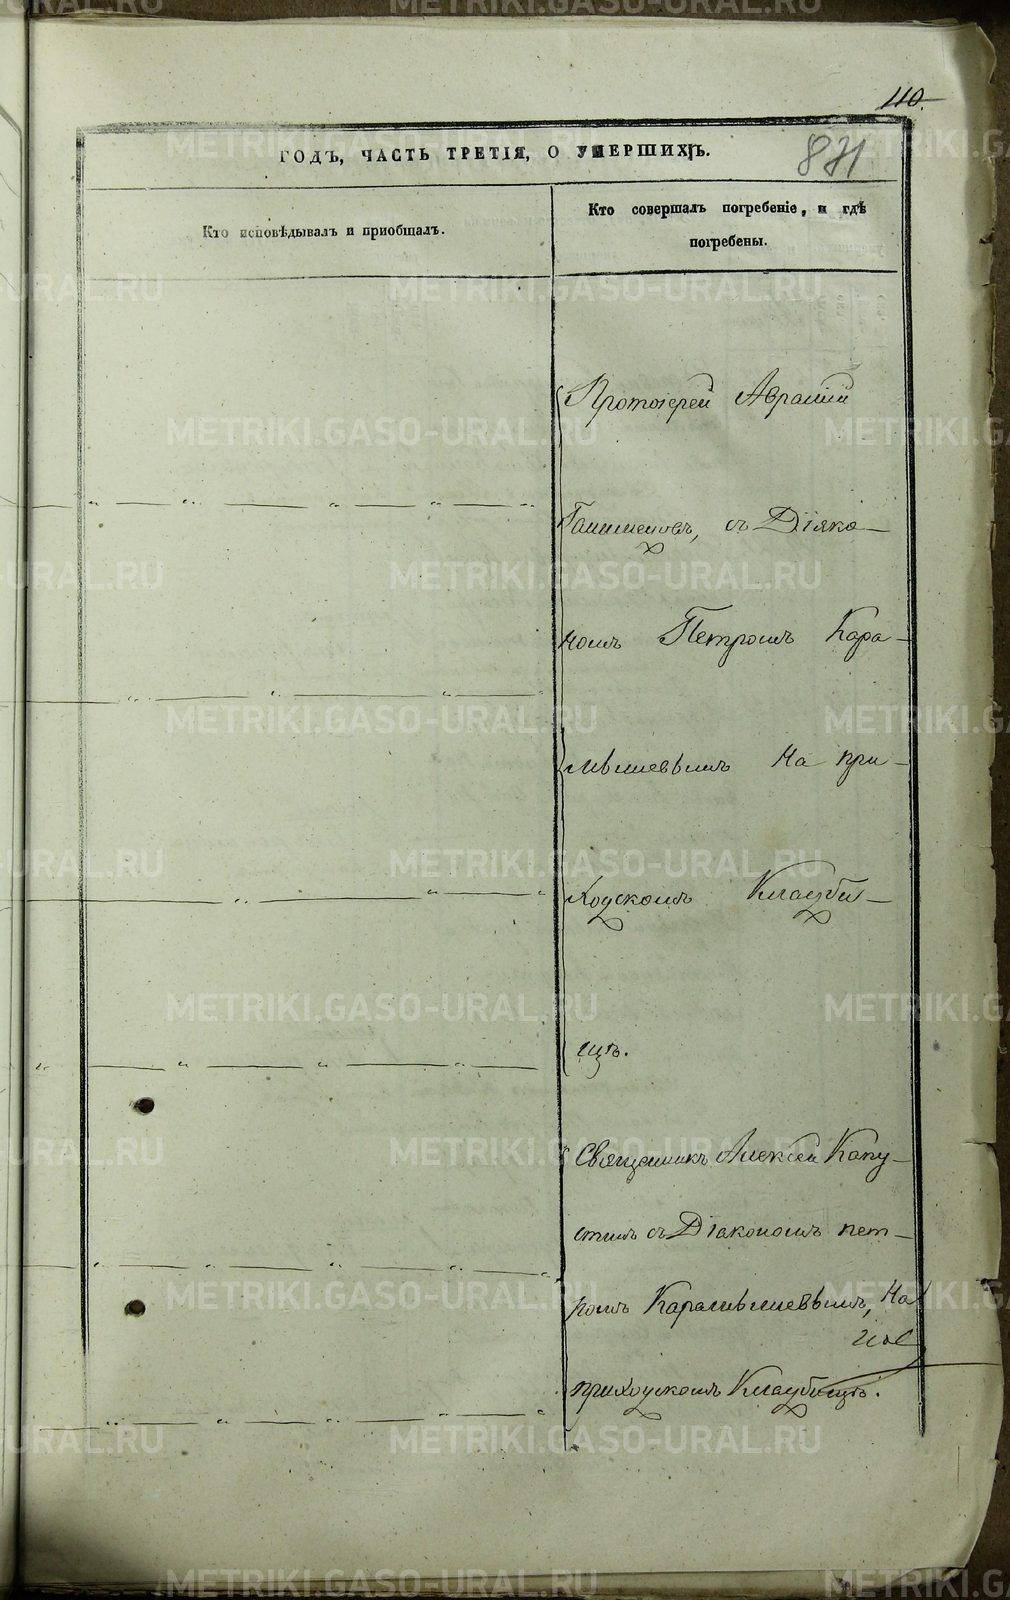 110.
ГОДЪ, ЧАСТЬ ТРЕТІЯ, О УМЕРШИХЪ.
871
Кто исповѣдывалъ и приобщалъ.
Кто совершалъ погребеніе, и гдѣ
погребены.
Протоіерей Аврамій
съ Діяко-
номъ Петромъ Кара-
на при-
ходскомъ Кладби-
щѣ.
Священникъ Алексѣй Капу-
стинъ съ Діакономъ Пет-
ромъ Карамышевымъ, на
приходскомъ Кладбищѣ.
METRIKI.GASO-URAL.RU